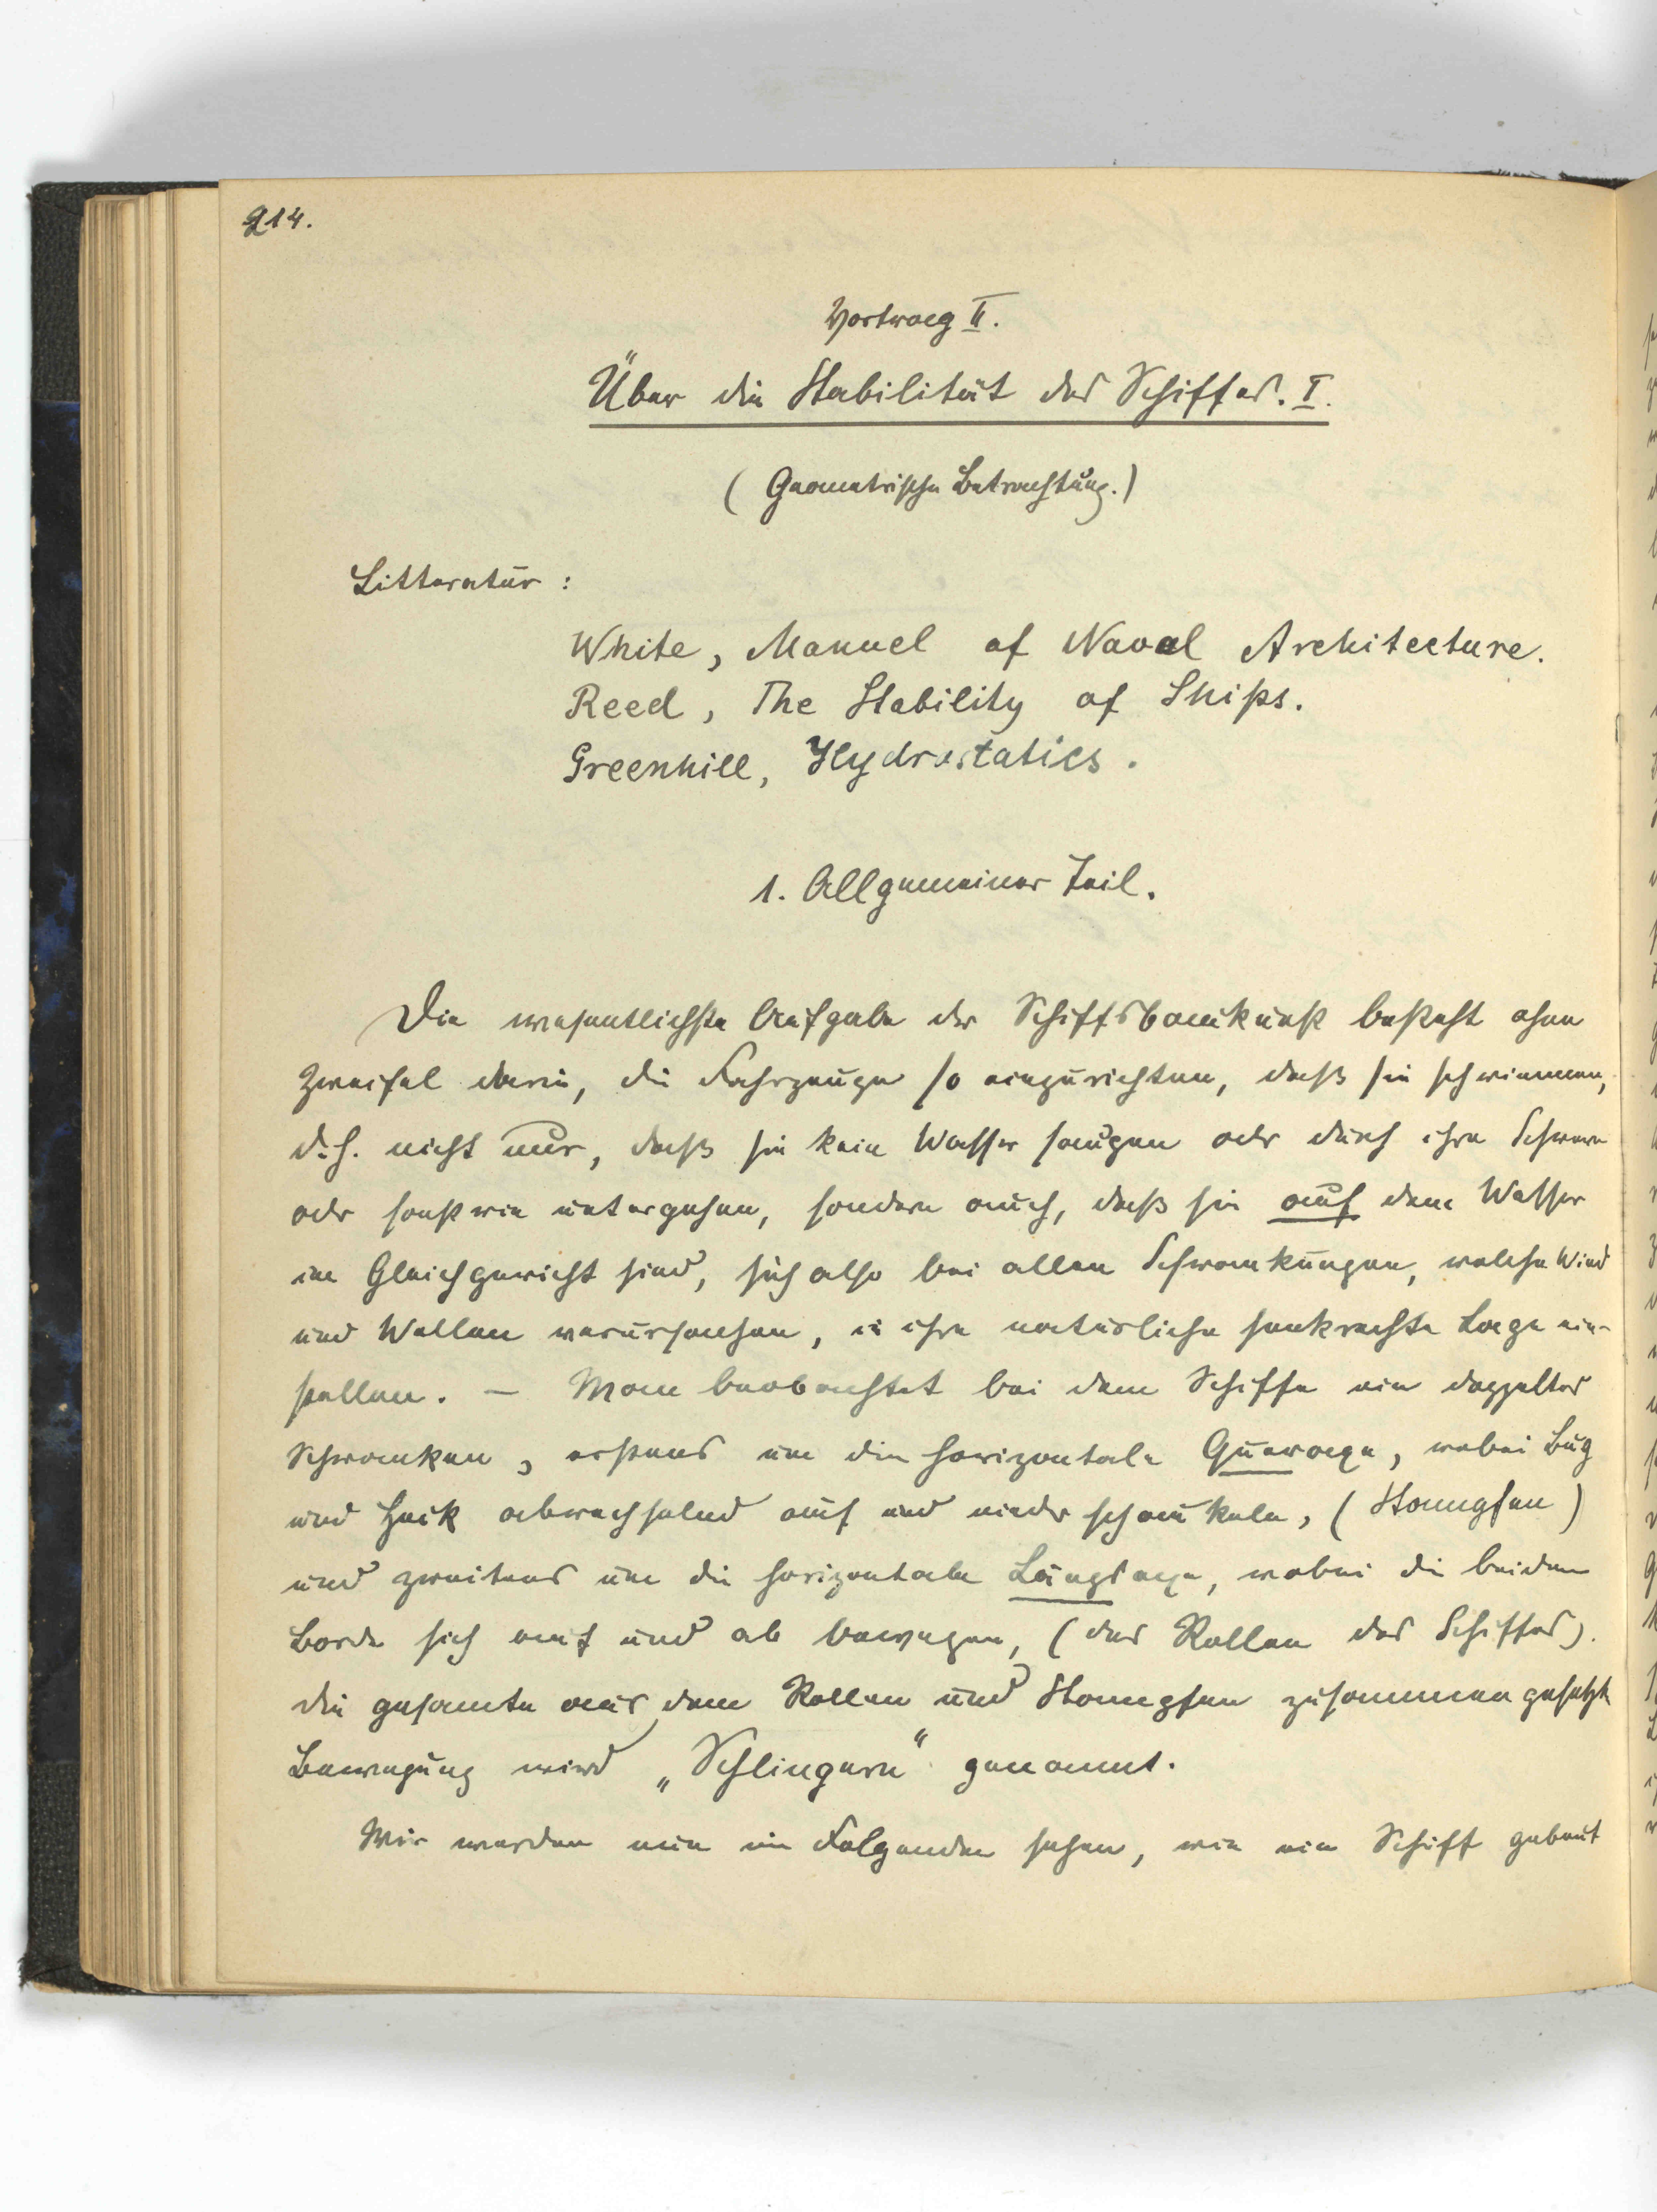 214.
Vortrag II.
Über die Stabilität des Schiffes. I.
(Geometrische Betrachtung.)
Litteratur:
White, Manuel of Naval Architecture.
Reed, The Stability of Ships.
Greenhill, Hydrostatics.
1. Allgemeiner Teil.
Die wesentlichste Aufgabe der Schiffsbaukunst besteht ohne
Zweifel darin, die Fahrzeuge so einzurichten, daß sie schwimmen,
d.h. nicht nur, daß sie kein Wasser saugen oder durch ihre Schwere
oder sonst wie untergehen, sondern auch, daß sie auf dem Wasser
im Gleichgewicht sind, sich also bei allen Schwankungen, welche Wind
und Wellen verursachen, in ihre natürliche senkrechte Lage ein-
stellen. — Man beobachtet bei dem Schiffe ein doppeltes
Schwanken, erstens um die horizontale Queraxe, wobei Bug
und Heck abwechselnd auf und nieder schaukeln, (Stampfen)
und zweitens um die horizontale Längsaxe, wobei die beiden
Borde sich auf und ab bewegen, (das Rollen des Schiffes).
Die gesamte aus dem Rollen und Stampfen zusammengesetzte
Bewegung wird „Schlingern" genannt.
Wir werden nun im Folgenden sehen, wie ein Schiff gebaut